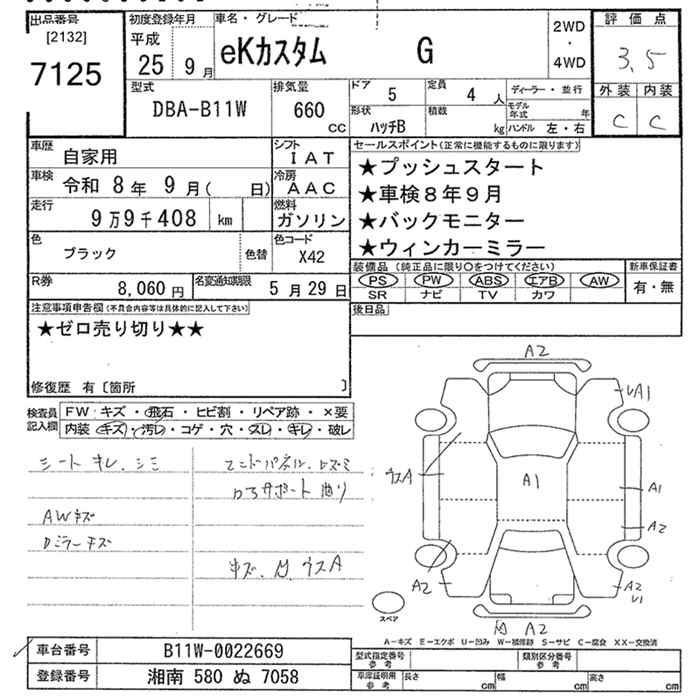 出品番号
[2132]
7125
初度登録年月
平成
25 9月
車名・グレード
eKカスタム G
2WD
・
4WD
評価点
3.5
外装 内装
C C
型式
DBA-B11W
排気量
660
CC
ドア 5
定員 4 人
ディーラー・並行
形状
ハッチB
積数
kg
モデル年式 年
ハンドル 左・右
車歴 自家用
シフト
IAT
車検 令和 8年 9月( 日)
冷房
AAC
走行 9万9千408 km
燃料
ガソリン
色 ブラック 色替
色コード
X42
R券 8,060円
名変通知期限 5月29日
セールスポイント(正常に機能するものに限ります)
★プッシュスタート
★車検8年9月
★バックモニター
★ウィンカーミラー
装備品(純正品に限り○をつけてください)
PS PW ABS エアB AW
SR ナビ TV カワ
新車保証書
有・無
後日品
注意事項申告欄(不具合内容等は具体的に記入して下さい)
★ゼロ売り切り★★
修復歴 有〔箇所 〕
検査員
記入欄
FW キズ・飛石・ヒビ割・リペア跡・×要
内装 キズ・汚レ・コゲ・穴・スレ・キレ・破レ
シート キレ、シミ
AWキズ
Dミラーキズ
コアサポート 曲り
キズ、凹、ウスA
A2
A1
ウスA
A1
A1
A2
A2
A2
A2
スペア
A−キズ E−エクボ U−凹ミ W−補修跡 S−サビ C−腐食 XX−交換済
車台番号 B11W-0022669
登録番号 湘南 580 ぬ 7058
型式指定番号
参考
類別区分番号
参考
車庫証明用
参考
長さ cm
幅 cm
高さ cm